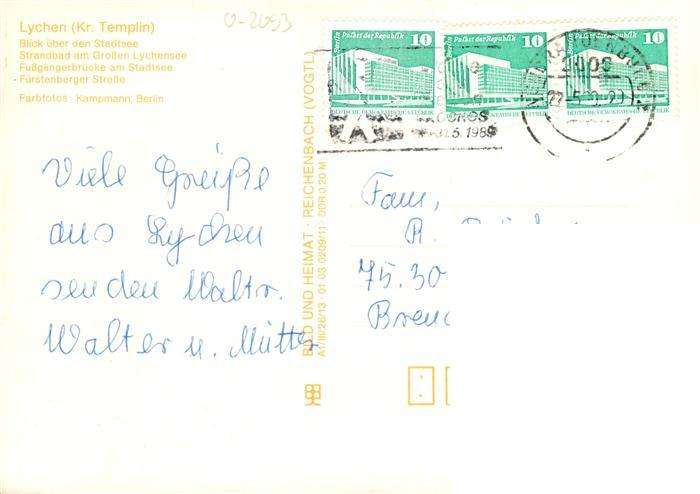 Lychen (Kr. Templin)
Blick über den Stadtsee
Strandbad am Großen Lychensee
Fußgängerbrücke am Stadtsee
Fürstenberger Straße
Farbfotos: Kampmann, Berlin
0-2093
Berlin Palast der Republik 10
DEUTSCHE DEMOKRATISCHE REPUBLIK
Berlin Palast der Republik 10
DEUTSCHE DEMOKRATISCHE REPUBLIK
Palast der Republik 10
DEUTSCHE DEMOKRATISCHE REPUBLIK
5.1989
Viele Greiße
aus Lychen
senden Waltr.
Walter u. Mutter
BILD UND HEIMAT · REICHENBACH (VOGTL)
A1/III/26/13 · 01 03 0209/11 DDR 0,20 M
Fam,
R.
75.30